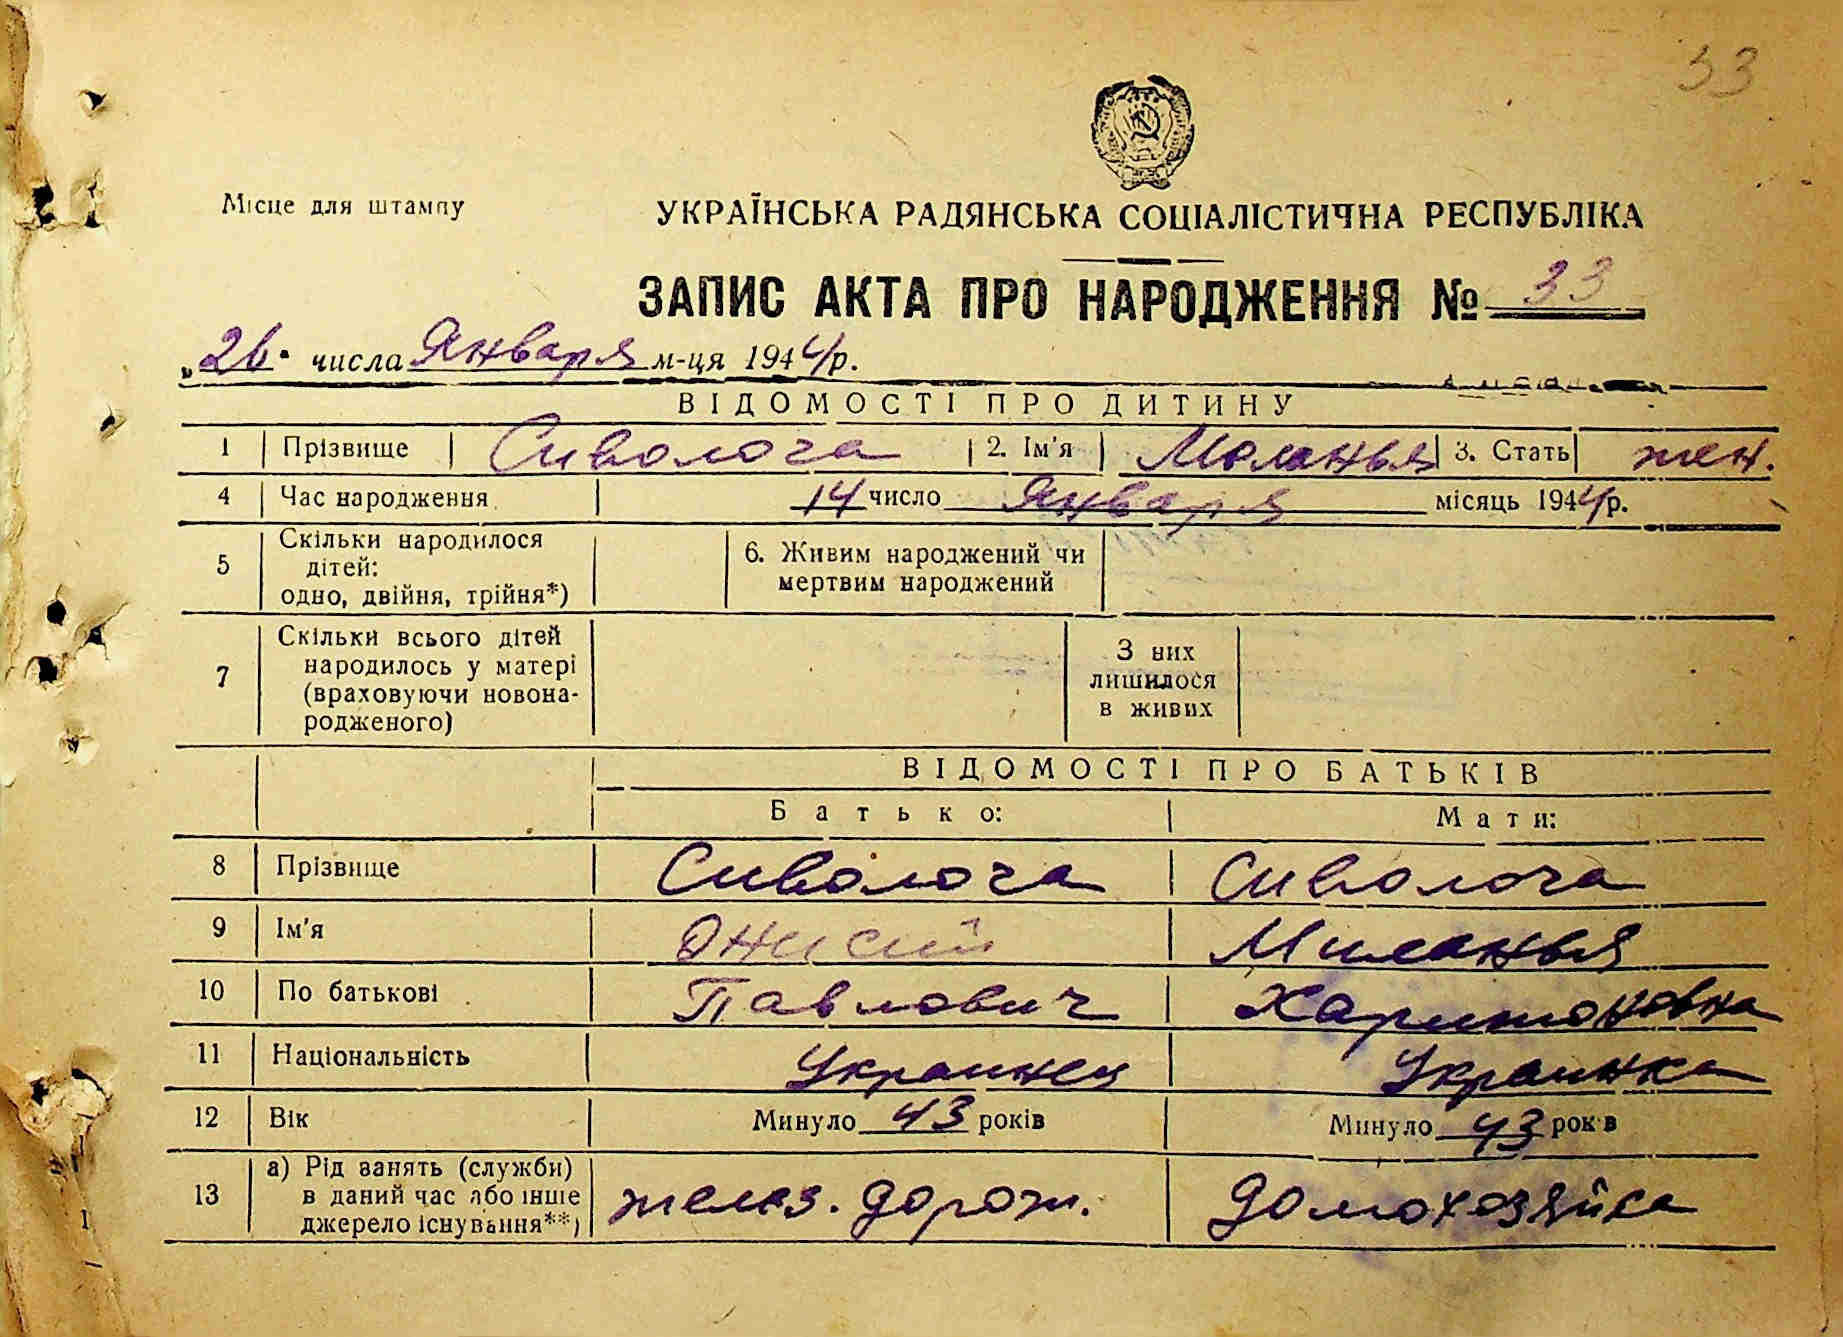 33
Місце для штампу
УКРАЇНСЬКА РАДЯНСЬКА СОЦІАЛІСТИЧНА РЕСПУБЛІКА
ЗАПИС АКТА ПРО НАРОДЖЕННЯ № 33
„26" числа Января м-ця 1944 р.
ВІДОМОСТІ ПРО ДИТИНУ
1 Прізвище Сиволога 2. Ім'я Моланья 3. Стать жен.
4 Час народження 14 число Января місяць 1944 р.
5 Скільки народилося дітей: одно, двійня, трійня*) 6. Живим народжений чи мертвим народжений
7 Скільки всього дітей народилось у матері (враховуючи новонародженого) З них лишилося в живих
ВІДОМОСТІ ПРО БАТЬКІВ
Батько: Мати:
8 Прізвище Сиволога Сиволога
9 Ім'я Онисий Миланья
10 По батькові Павлович Харитоновна
11 Національність Украинец Украинка
12 Вік Минуло 43 років Минуло 43 років
13 а) Рід занять (служби) в даний час або інше джерело існування**) желез. дорож. домохозяйка